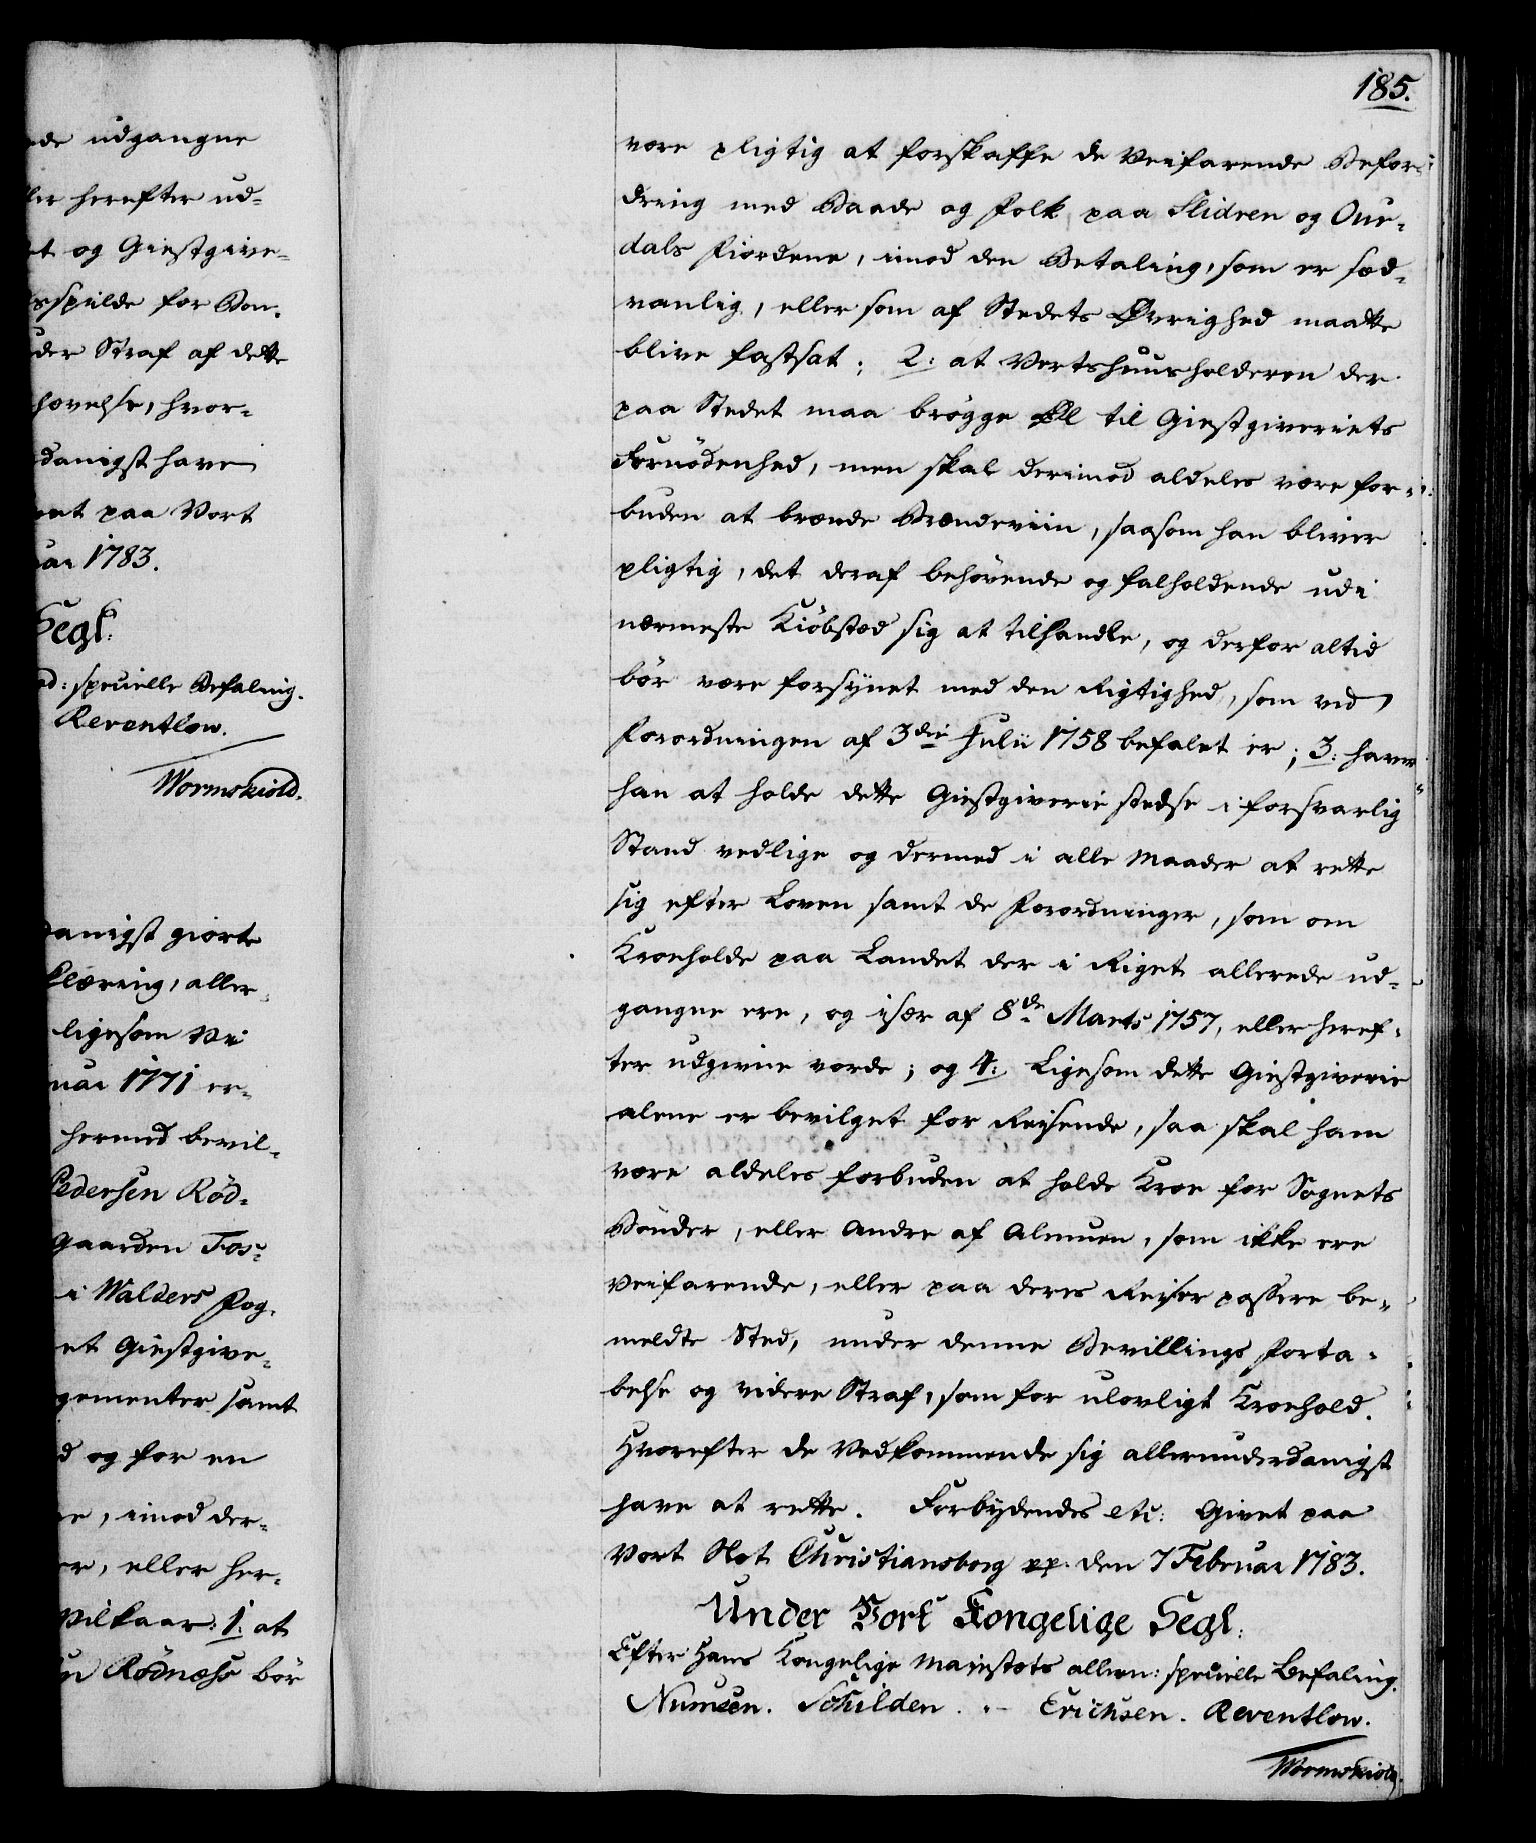 de udgangne
ler herefter ud-
et og Giestgive-
sspilde for Bøn-
der Straf af dette
hævelse, hvor-
danigst have
vet paa Vort
uar 1783.
Segl:
ad: specielle Befaling.
Reventlow.
Wormskiold.
danigst giorte
klæring, aller-
ligesom Vi
uar 1771 er-
hermed bevil-
Pedersen Röd-
Gaarden Fos-
i Walders Fog-
et Giestgive-
gementer samt
d og for en
re, imod der-
er, eller her-
Vilkaar: 1: at
en Rödnæhs bör
185.
være pligtig at forskaffe de Veifarende Befor-
dring med Baade og Folk paa Slidren og Our-
dals Fiordene, imod den Betaling, som er sæd-
vanlig, eller som af Stedets Øvrighed maatte
blive fastsat; 2: at Vertshuusholderen der
paa Stedet maa brøgge Øl til Giestgiveriets
Fornödenhed, men skal derimod aldeles være for-
buden at brænde Brændeviin, saasom han bliver
pligtig, det deraf behövende og falholdende udi
nærmeste Kiöbstæd sig at tilhandle, og derfor altid
bör være forsynet med den Rigtighed, som ved
Forordningen af 3die Julii 1758 befalet er; 3: haver
han at holde dette Giestgiverie stedse i forsvarlig
Stand vedlige og dermed i alle Maader at rette
sig efter Loven samt de Forordninger, som om
Kroehold paa Landet der i Riget allerede ud-
gangne ere, og især af 8de Marts 1757, eller heref-
ter udgivne vorde; og 4: Ligesom dette Giestgiverie
alene er bevilget for Reisende, saa skal ham
være aldeles forbuden at holde Kroe for Sognets
Bönder, eller Andre af Almuen, som ikke ere
Veifarende, eller paa deres Reiser passere be-
meldte Sted, under denne Bevillings Forta-
belse og videre Straf, som for ulovligt Kroehold.
Hvorefter de Vedkommende sig allerunderdanigst
have at rette. Forbydendes etc: Givet paa
Vort Slot Christiansborg pp. den 7 Februar 1783.
Under Vort Kongelige Segl:
Efter Hans Kongelige Maiestæts allern: specielle Befaling.
Numsen. Schilden. - Erichsen. Reventlow.
Wormskiold.